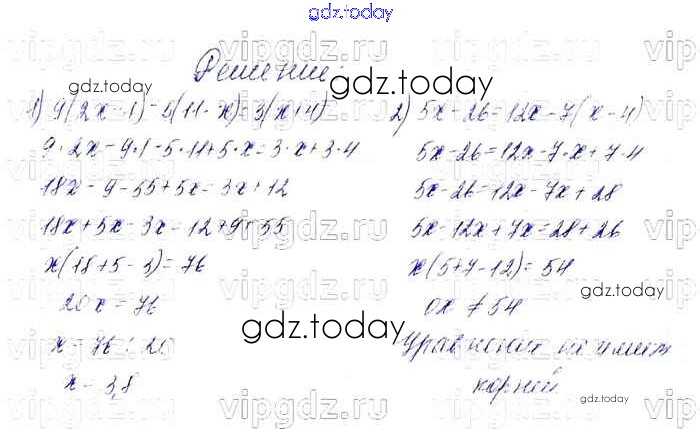 gdz.today
Решение
1) 9(2x-1)-5(11-x)=3(x+4)
9·2x-9·1-5·11+5·x=3·x+3·4
18x-9-55+5x=3x+12
18x+5x-3x=12+9+55
x(18+5-3)=76
20x=76
x=76:20
x=3,8
2) 5x-26=12x-7(x-4)
5x-26=12x-7·x+7·4
5x-26=12x-7x+28
5x-12x+7x=28+26
x(5+7-12)=54
0x≠54
Уравнение не имеет
корней
gdz.today
gdz.today
gdz.today
gdz.today
vipgdz.ru
vipgdz.ru
vipgdz.ru
vipgdz.ru